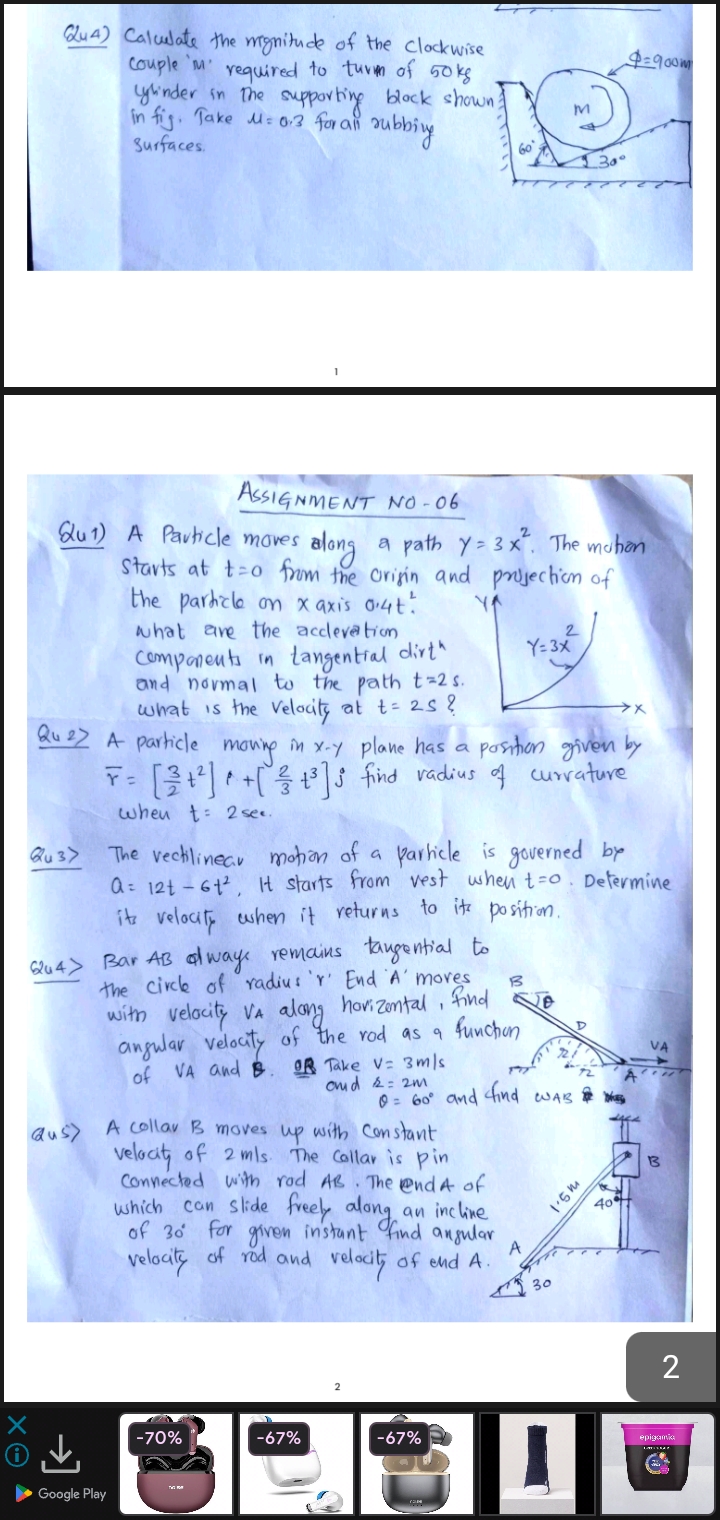 Qu4) Calculate the mgnitude of the clockwise
couple 'M' required to turn of 50 kg
cylinder in the supporting block shown
in fig. Take μ = 0.3 for all rubbing
surfaces.
φ=900m
M
60°
30°
1
ASSIGNMENT NO - 06
Qu 1) A Particle moves along a path Y = 3x². The motion
starts at t=0 from the origin and projection of
the particle on x axis 0.4t².
what are the accleration
components in tangential dirtⁿ
and normal to the path t=2s.
what is the velocity at t = 2s ?
Y
Y=3x²
x
Qu 2> A particle moving in x-y plane has a position given by
r̄ = [3/2 t²] i + [2/3 t³] j find radius of curvature
when t = 2 sec.
Qu 3> The rectilinear motion of a particle is governed by
a = 12t - 6t², It starts from rest when t=0. Determine
its velocity when it returns to its position.
Qu4> Bar AB always remains tangential to
the circle of radius 'r' End 'A' moves
with velocity VA along horizontal, find
angular velocity of the rod as a function
of VA and θ. OR Take V= 3m/s
and r = 2m
θ = 60° and find WAB
B
θ
D
VA
r
A
Qu5> A collar B moves up with constant
velocity of 2 m/s. The collar is pin
connected with rod AB. The end A of
which can slide freely along an incline
of 30° for given instant find angular
velocity of rod and velocity of end A.
B
1.5m
40°
A
30
2
2
-70%
-67%
-67%
noise
epigamia
Google Play